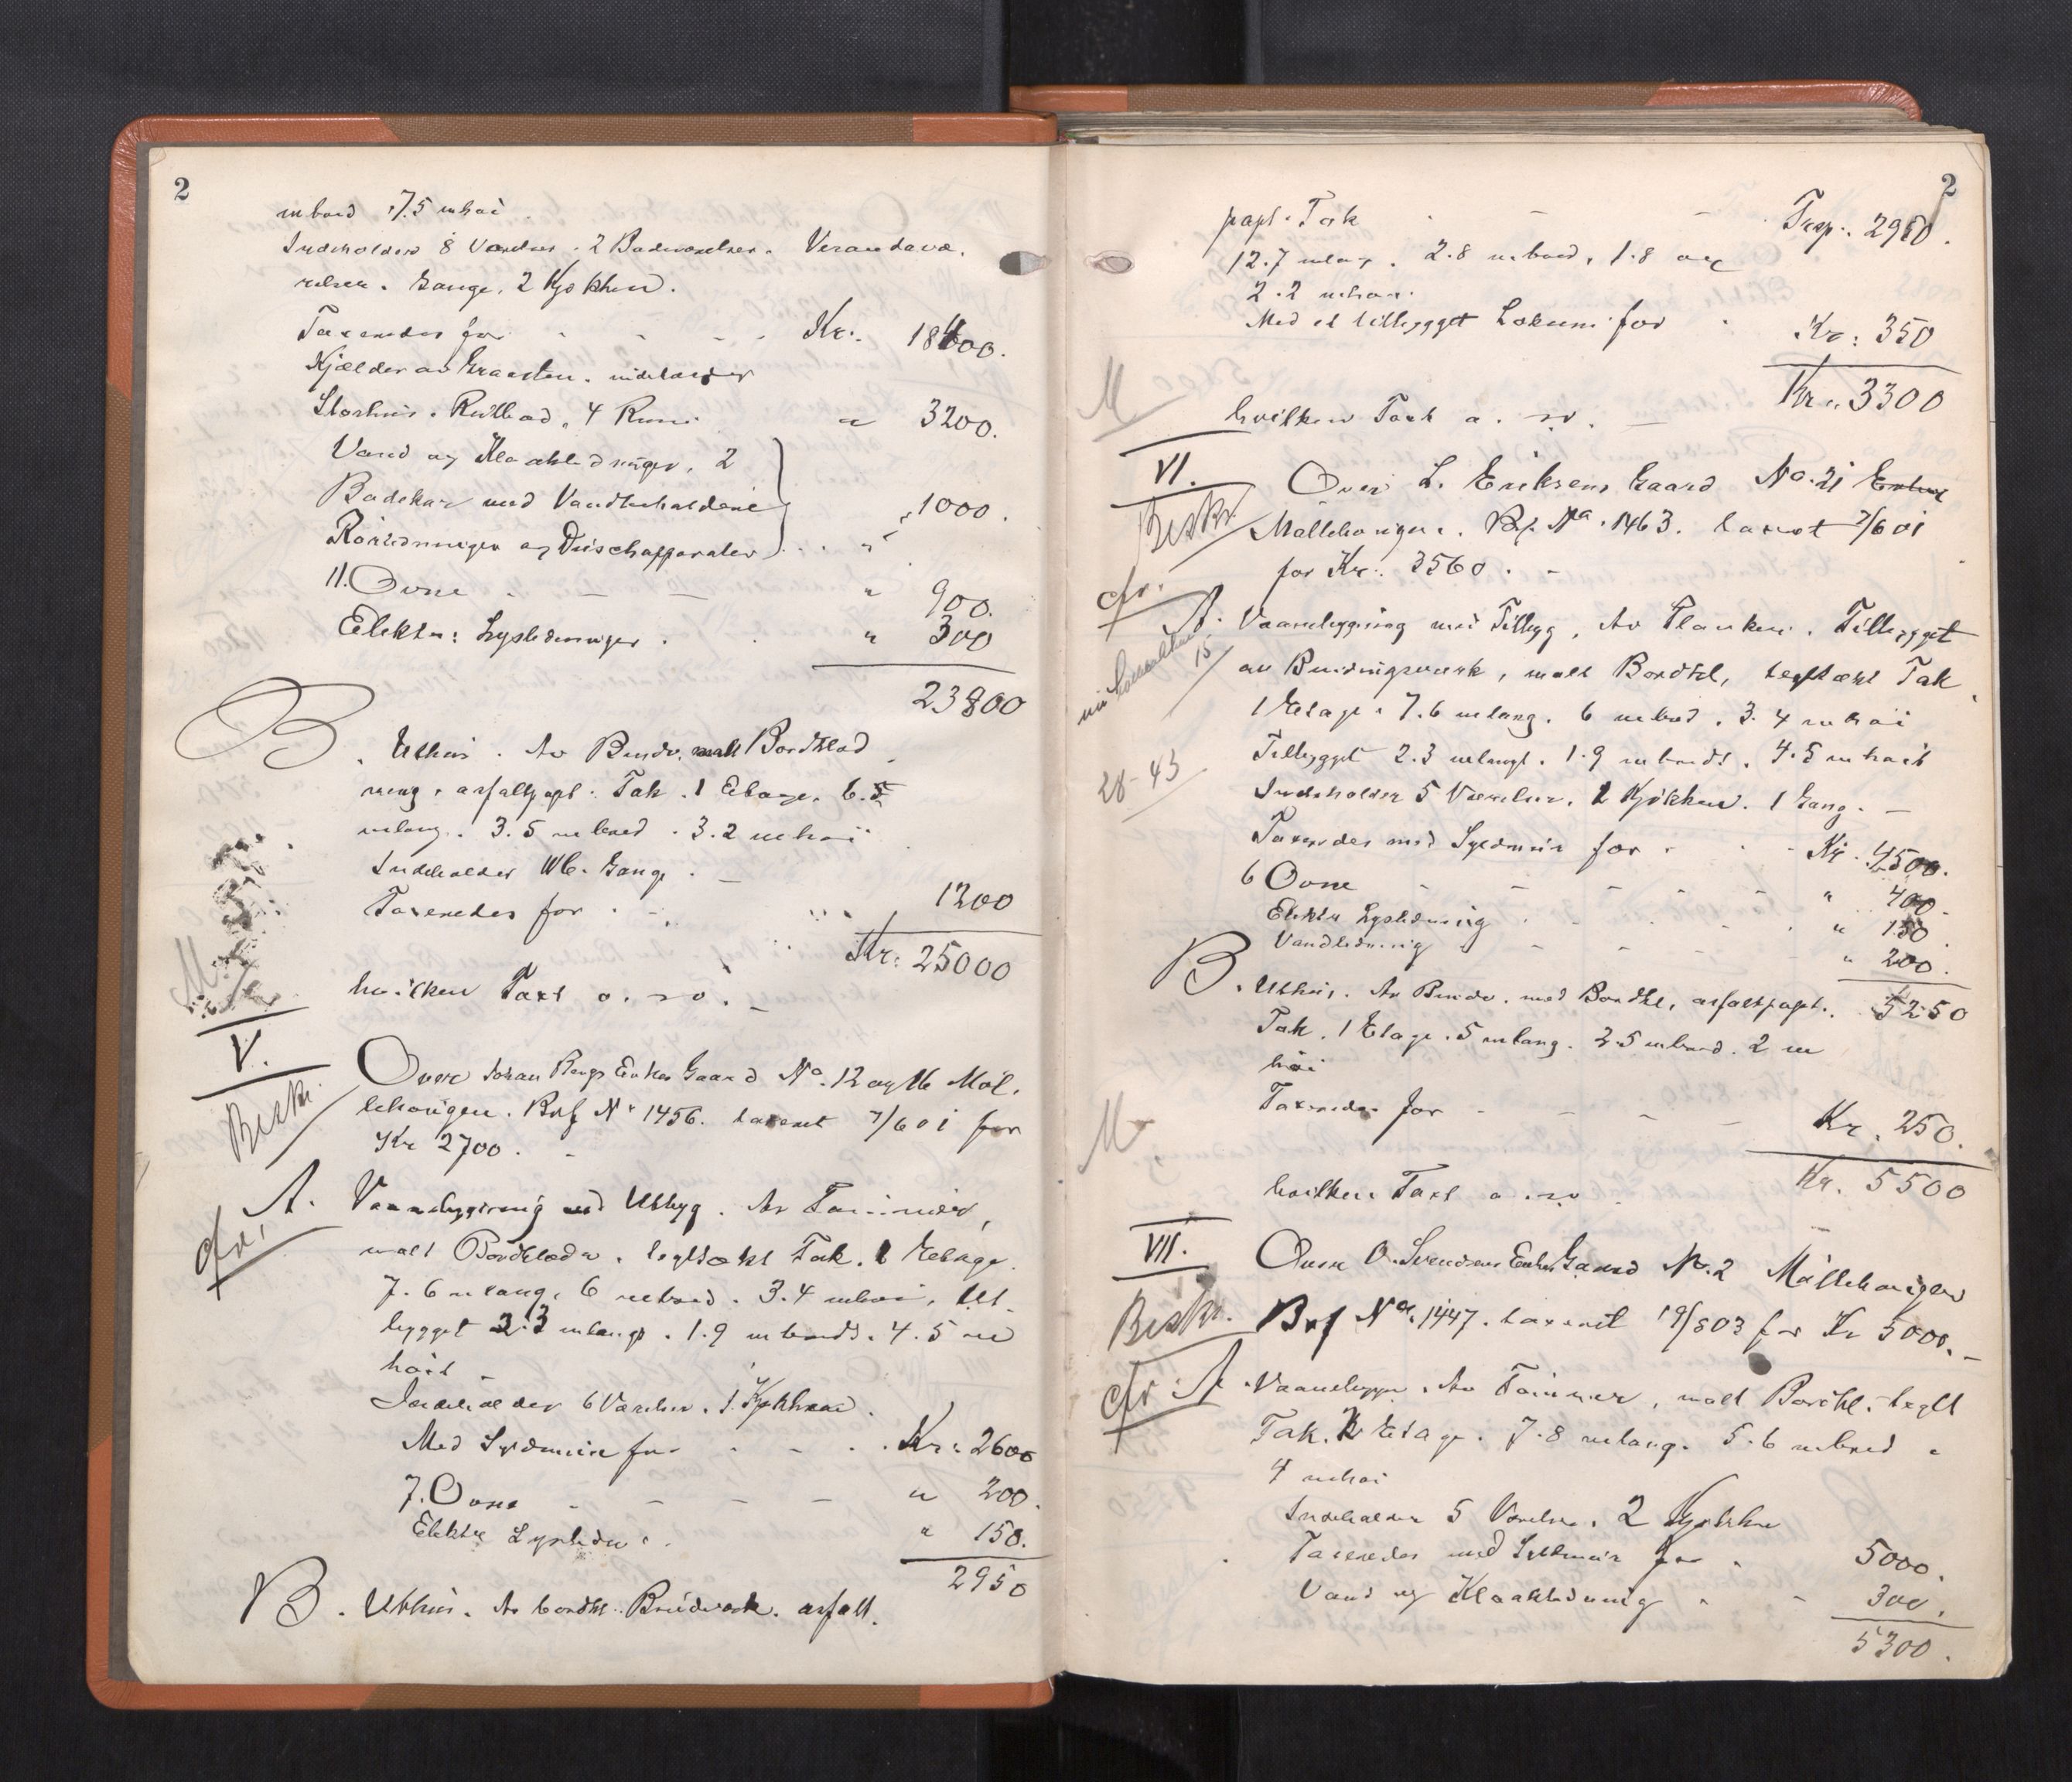 2
m bred 7.5 m høi
Indeholder 8 Værelser. 2 Badeværelser. Verandavæ,
relser. Gange. 2 Kjøkken.
Taxeredes for - - - Kr. 18400.
Kjælder av Graasten. indeholder
Storhus. Rullbod, 4 Rum. " 3200.
Vand og Kloakledninger, 2
Badekar med Vandbeholdere
Rørledninger og Duschapparater) . . . " 1000.
11. Ovne - - - " 900.
Elektr: Lysledninger . " 300
23800
B. Uthus. Av Bindv. malt Bordklæd
ning. asfaltpapt: Tak. 1 Etage. 6.5
m lang. 3.5 m bred. 3.2 m høi
Indeholder Wc. Gange. -
Taxeredes for . - 1200
Kr: 25000
hvilken Taxt o. s. v. -
M
V.
Beskr
Over Johan Bergs Enkes Gaard No. 12 og 16 Møl,
lehaugen. Brf No 1456. taxeret 7/6 01 for
Kr 2700. -
cfr.
A. Vaaningsbygning med Utbyg. Av Tømmer,
malt Bordklædn. teglsækt Tak. 1 Etage.
7.6 m lang, 6 m bred. 3.4 m høi, Ut-
bygget 2.3 m langt. 1.9 m bredt. 4.5 m
høit
Indeholder 6 Værelser. 1 Kjøkken.
Med Syldmur for - - . Kr: 2600
7. Ovne - - - - " 200.
Elektr Lysledn: . " 150.
2950
B. Uthus. Av bordkl. Bindværk. asfalt.
2
papt. Tak - - Trsp.: 2950.
12.7 m lang. 2.8 m bred, 1.8 og
2.2 m høi.
Med et tilbygget Lokum for . Kr: 350
Kr. 3300
M
hvilken Taxt o. s. v. -
VI.
Beskr
Over L. Eriksens Gaard No. 21
Møllehaugen. Brf. No. 1463. taxeret 7/6 01
for Kr. 3560. -
cfr.
A. Vaaningsbygning med Tilbyg. Av Planker. Tilbygget
av Bindingsværk, malt Bordkl, teglsækt Tak
1 Etage. 7.6 m lang. 6 m bred. 3.4 m høi
Tilbygget 2.3 m langt. 1.9 m bredt. 4.5 m høit
Indeholder 5 Værelser. 2 Kjøkken. 1 Gang. -
15
28-43
Taxeredes med Syldmur for . . - Kr. 4500.
6 Ovne - - - - - " 400.
Elektr Lysledning . - - . . " 150.
Vandledning - - - - " 200.
5250
B. Uthus. Av Bindv. med Bordkl, asfaltpapt.
Tak. 1 Etage. 5 m lang. 2.5 m bred. 2 m
høi
Taxeredes for - - - - Kr. 250.
M
Kr. 5500
hvilken Taxt o. s. v.
VII.
Over O. Svendsens Enkes Gaard No. 2 Møllehaugen
Beskr.
Brf No. 1447. taxeret 19/8 03 for Kr 5000. -
cfr
A. Vaaningsbygn. Av Tømmer, malt Bordkl. teglt
Tak. 2 Etage. 7.8 m lang. 5.6 m bred.
4 m høi
Indeholder 5 Værelser. 2 Kjøkken
Taxeredes med Syldmur for . 5000.
Vand og Kloakledning . - 300.
5300.